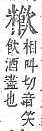 相叫切音笑
飲酒盡也